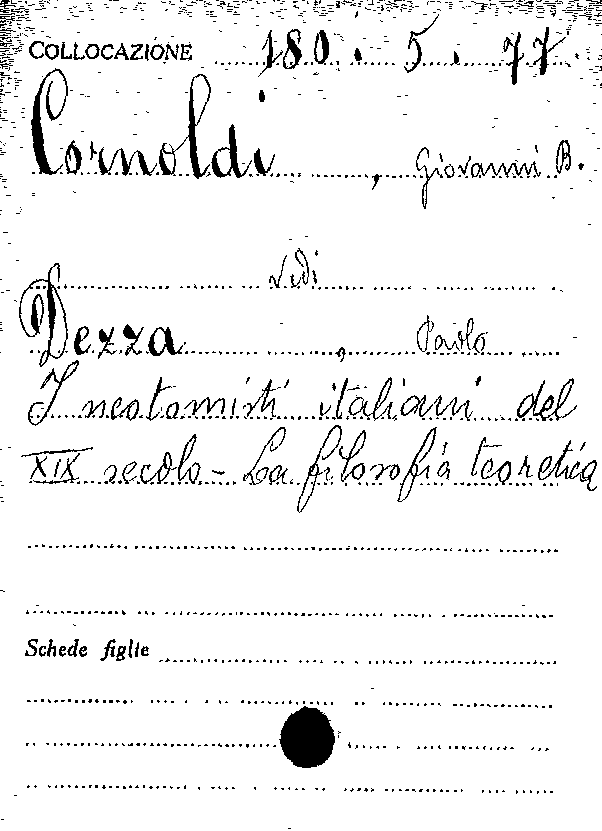 COLLOCAZIONE 180. 5. 77.
Cornoldi, Giovanni B.
Vedi
Dezza, Paolo
I neotomisti italiani del
XIX secolo - La filosofia teoretica
Schede figlie